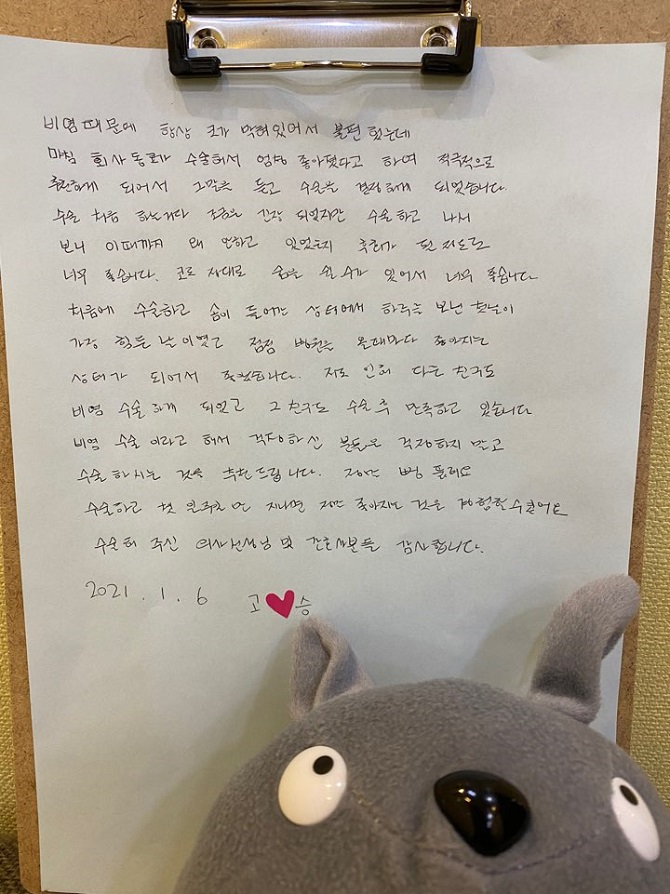 비염때문에 항상 코가 막혀있어서 불편 했는데
마침 회사동료가 수술해서 엄청 좋아졌다고 하며 적극적으로
추천하게 되어서 그말을 듣고 수술을 결정하게 되었습니다.
수술 처음 하는거다 조금은 긴장 되었지만 수술하고 나서
보니 이때까지 왜 안하고 있었는지 후회가 될정도로
너무 좋습니다. 코로 제대로 숨을 쉴수가 있어서 너무 좋습니다
처음에 수술하고 솜이 들어간 상태에서 하루를 보낸 첫날이
가장 힘든 날이였고 점점 병원을 올때마다 좋아지는
상태가 되어서 좋았습니다. 저로 인해 다른 친구도
비염 수술하게 되었고 그친구도 수술 후 만족하고 있습니다
비염 수술이라고 해서 걱정하신 분들은 걱정하지 말고
수술 하시는 것을 추천드립니다. 점점 뻥 뚫려요
수술하고 첫 일주일만 지나면 점점 좋아지는 것을 경험할수있어요
수술해 주신 의사선생님 및 간호사분들 감사합니다.
2021. 1. 6 고 승